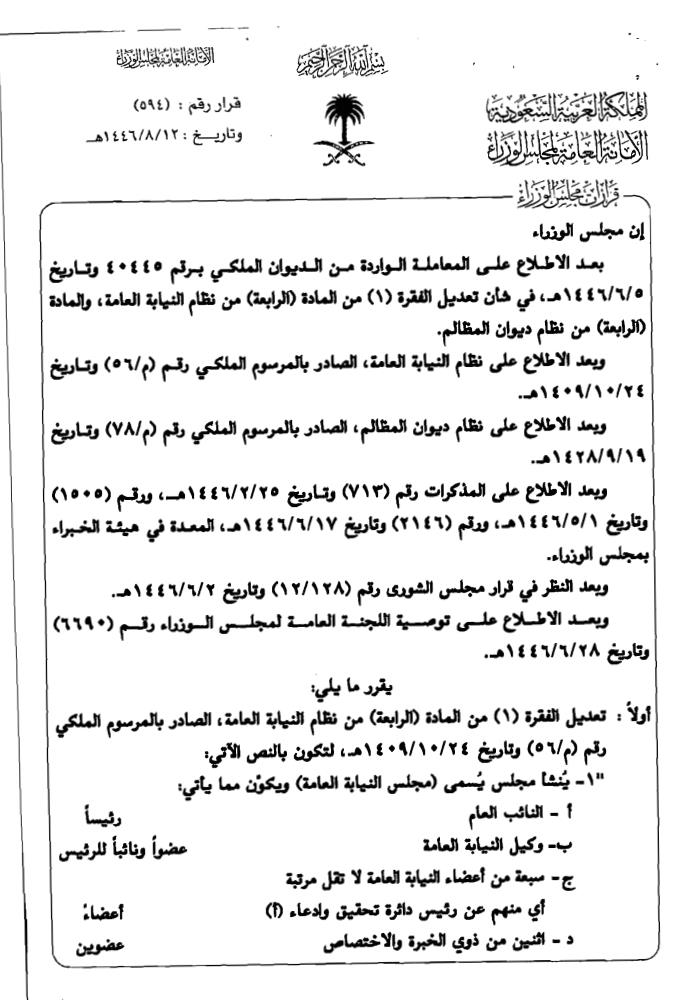 بسم الله الرحمن الرحيم
المملكة العربية السعودية
الأمانة العامة لمجلس الوزراء
الأمانة العامة لمجلس الوزراء
قرار رقم : (٥٩٤)
وتاريخ : ١٤٤٦/٨/١٢هـ
قرارات مجلس الوزراء
إن مجلس الوزراء
بعد الاطلاع على المعاملة الواردة من الديوان الملكي برقم ٤٠٤٤٥ وتاريخ
١٤٤٦/٦/٥هـ، في شأن تعديل الفقرة (١) من المادة (الرابعة) من نظام النيابة العامة، والمادة
(الرابعة) من نظام ديوان المظالم.
وبعد الاطلاع على نظام النيابة العامة، الصادر بالمرسوم الملكي رقم (م/٥٦) وتاريخ
١٤٠٩/١٠/٢٤هـ.
وبعد الاطلاع على نظام ديوان المظالم، الصادر بالمرسوم الملكي رقم (م/٧٨) وتاريخ
١٤٢٨/٩/١٩هـ.
وبعد الاطلاع على المذكرات رقم (٧١٣) وتاريخ ١٤٤٦/٢/٢٥هـ، ورقم (١٥٠٥)
وتاريخ ١٤٤٦/٥/١هـ، ورقم (٢١٤٦) وتاريخ ١٤٤٦/٦/١٧هـ، المعدة في هيئة الخبراء
بمجلس الوزراء.
وبعد النظر في قرار مجلس الشورى رقم (١٢/١٢٨) وتاريخ ١٤٤٦/٦/٢هـ.
وبعد الاطلاع على توصية اللجنة العامة لمجلس الوزراء رقم (٦٦٩٠)
وتاريخ ١٤٤٦/٦/٢٨هـ.
يقرر ما يلي:
أولاً : تعديل الفقرة (١) من المادة (الرابعة) من نظام النيابة العامة، الصادر بالمرسوم الملكي
رقم (م/٥٦) وتاريخ ١٤٠٩/١٠/٢٤هـ، لتكون بالنص الآتي:
"١- يُنشأ مجلس يُسمى (مجلس النيابة العامة) ويكوّن مما يأتي:
أ - النائب العام رئيساً
ب- وكيل النيابة العامة عضواً ونائباً للرئيس
ج- سبعة من أعضاء النيابة العامة لا تقل مرتبة
أي منهم عن رئيس دائرة تحقيق وادعاء (أ) أعضاءً
د - اثنين من ذوي الخبرة والاختصاص عضوين